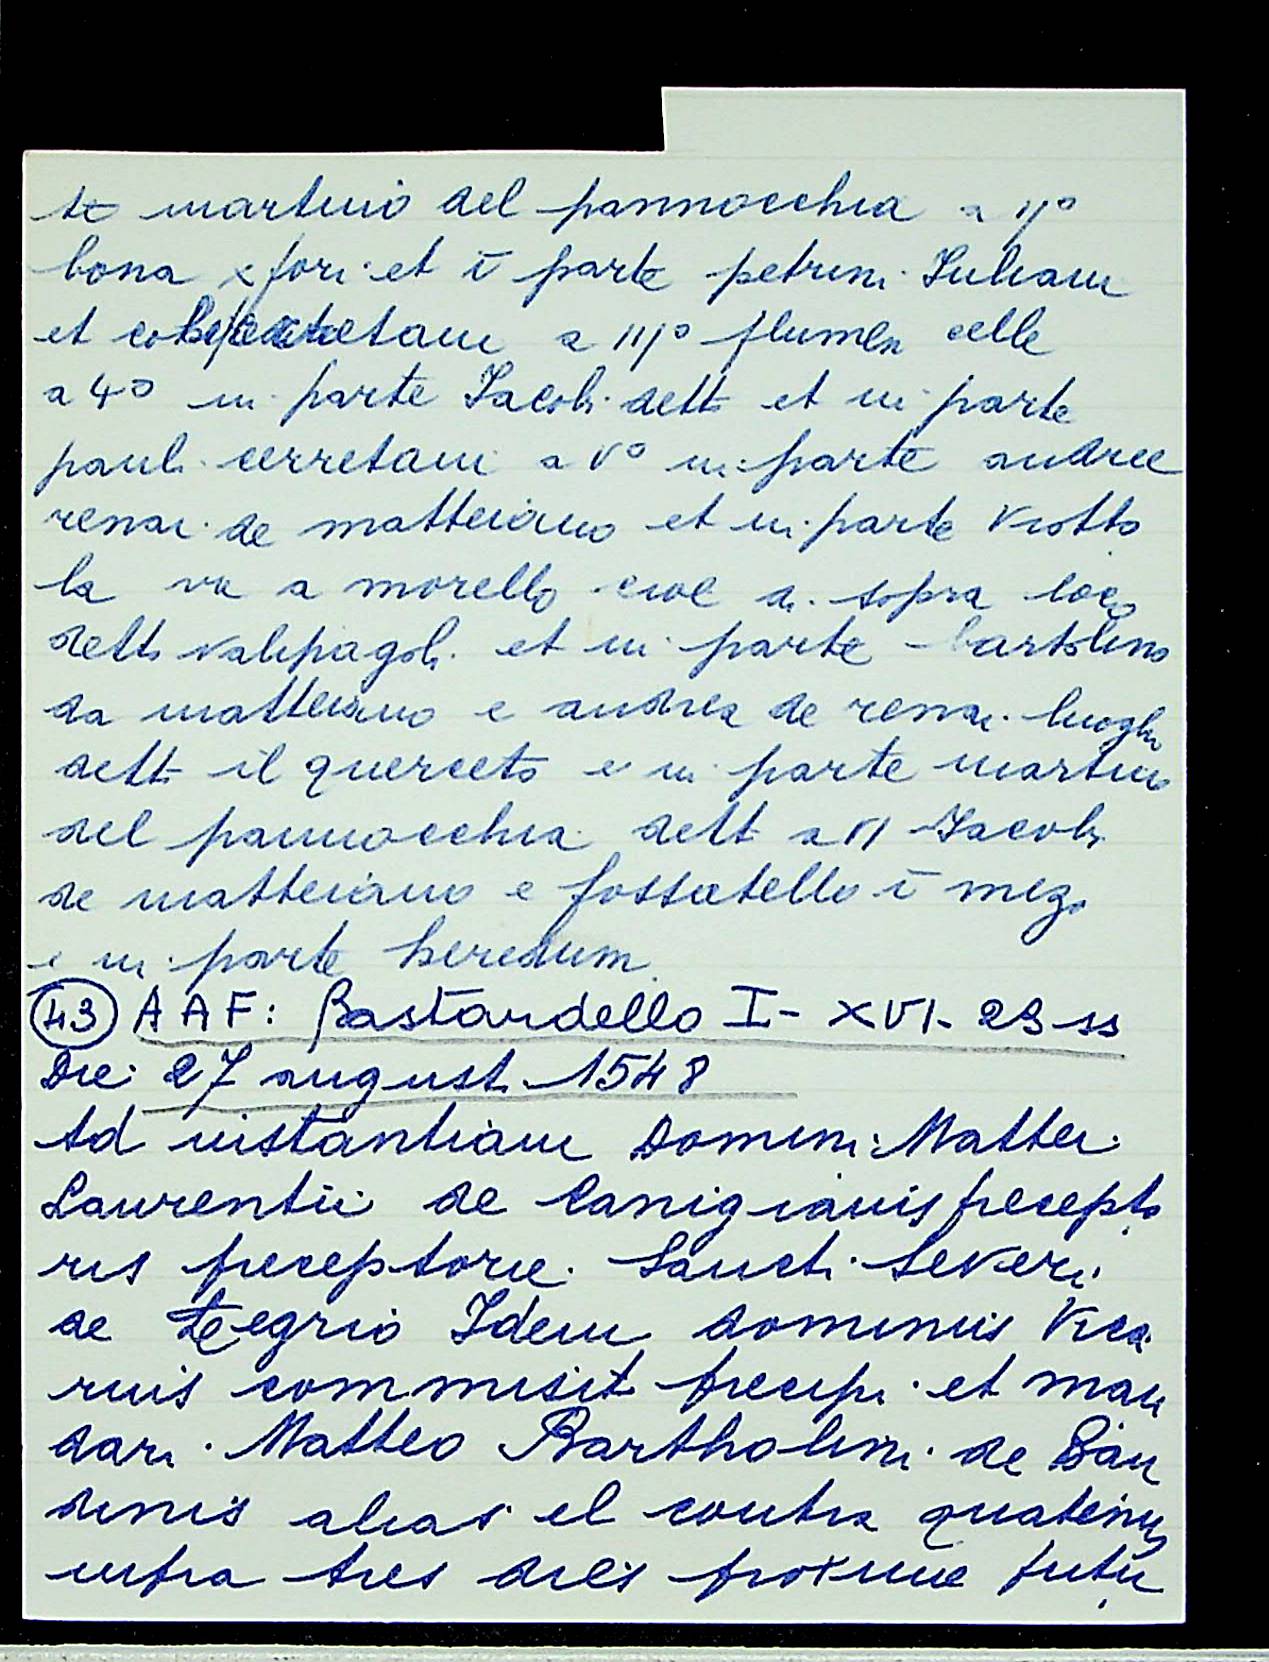 to martino del pannocchia a 11°
bona xfori et ī parte petrini Iuliani
et cerretani a 111° flumen celle
a 4° in parte Iacobi detto et in parte
pauli cerretani a V° in parte andree
renai de matteiano et in parte viotto
la va a morello cioe di sopra loco
detto valipagoli et in parte bartolino
da matteiano e andrea de renai luoghi
detti il querceto e in parte martino
del pannocchia detto a VI Iacobi
de matteiano e fossatello ī mezo
e in parte heredum
43 AAF: Bastardello I - XVI - 29 ss
Die 27 augusti 1548
Ad instantiam Domini Mattei
Laurentii de Canigianis precepto
ris preceptorie Sancti Severi
de Legrio Idem dominus Vica
rius commisit precipi et man
dari Matteo Bartholini de Ban
dinis alias el contra quatenus
infra tres dies proxime futu